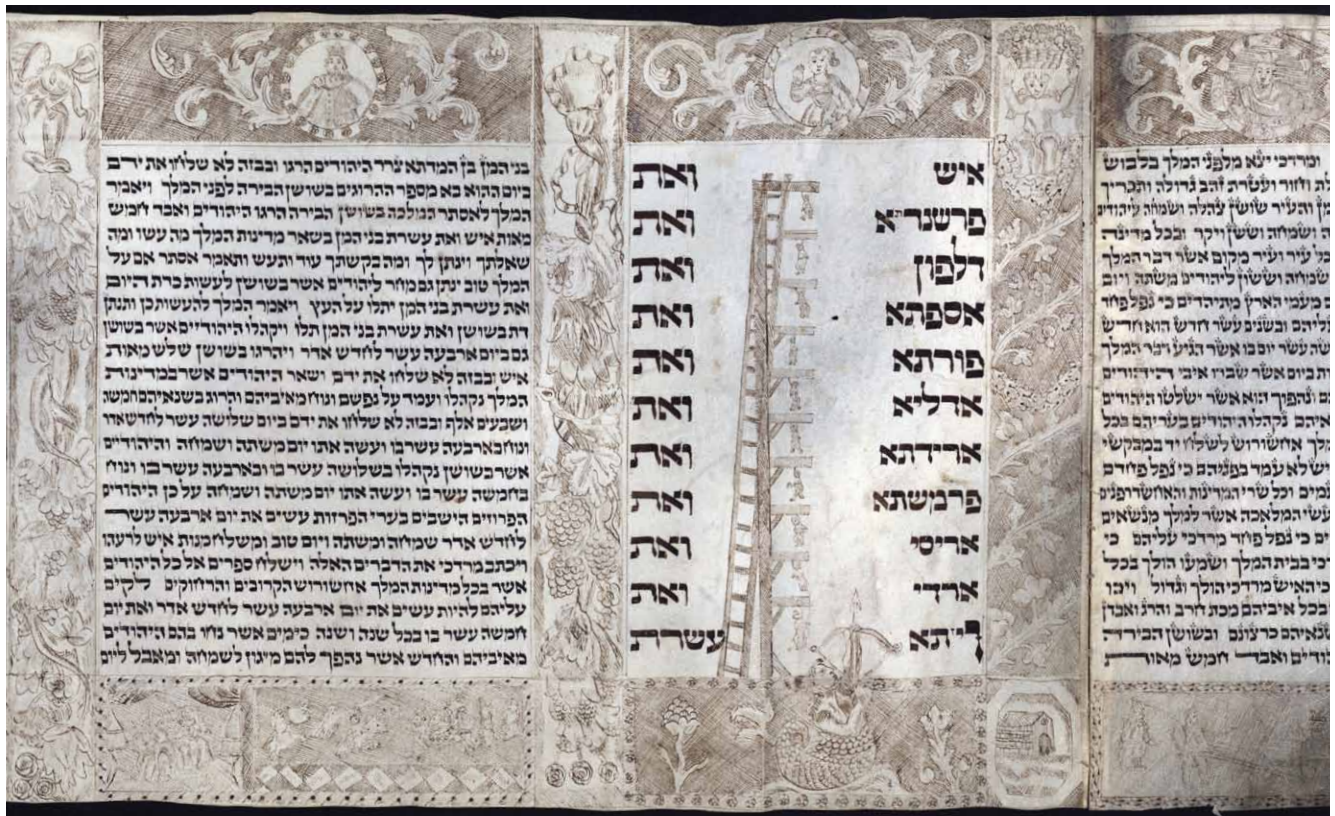 ומרדכי יצא מלפני המלך בלבוש
לת וחור ועטרת זהב גדולה ותכריך
מן והעיר שושן צהלה ושמחה ליהודים
ה ושמחה וששן ויקר ובכל מדינה
בכל עיר ועיר מקום אשר דבר המלך
שמחה וששון ליהודים משתה ויום
ם מעמי הארץ מתיהדים כי נפל פחד
עליהם ובשנים עשר חדש הוא חדש
שה עשר יום בו אשר הגיע דבר המלך
ות ביום אשר שברו איבי היהודים
הם ונהפוך הוא אשר ישלטו היהודים
איהם נקהלו היהודים בעריהם בכל
מלך אחשורוש לשלח יד במבקשי
יש לא עמד בפניהם כי נפל פחדם
עמים וכל שרי המדינות והאחשדרפנים
עשי המלאכה אשר למלך מנשאים
ים כי נפל פחד מרדכי עליהם כי
דכי בבית המלך ושמעו הולך בכל
כי האיש מרדכי הולך וגדול ויכו
בכל איביהם מכת חרב והרג ואבדן
שנאיהם כרצונם ובשושן הבירה
הודים ואבד חמש מאות
איש ואת
פרשנדתא ואת
דלפון ואת
אספתא ואת
פורתא ואת
אדליא ואת
ארידתא ואת
פרמשתא ואת
אריסי ואת
ארדי ואת
ויזתא עשרת
בני המן בן המדתא צרר היהודים הרגו ובבזה לא שלחו את ידם
ביום ההוא בא מספר ההרוגים בשושן הבירה לפני המלך ויאמר
המלך לאסתר המלכה בשושן הבירה הרגו היהודים ואבד חמש
מאות איש ואת עשרת בני המן בשאר מדינות המלך מה עשו ומה
שאלתך וינתן לך ומה בקשתך עוד ותעש ותאמר אסתר אם על
המלך טוב ינתן גם מחר ליהודים אשר בשושן לעשות כדת היום
ואת עשרת בני המן יתלו על העץ ויאמר המלך להעשות כן ותנתן
דת בשושן ואת עשרת בני המן תלו ויקהלו היהודיים אשר בשושן
גם ביום ארבעה עשר לחדש אדר ויהרגו בשושן שלש מאות
איש ובבזה לא שלחו את ידם ושאר היהודים אשר במדינות
המלך נקהלו ועמד על נפשם ונוח מאיביהם והרוג בשנאיהם חמשה
ושבעים אלף ובבזה לא שלחו את ידם ביום שלושה עשר לחדש אדר
ונוח בארבעה עשר בו ועשה אתו יום משתה ושמחה והיהודיים
אשר בשושן נקהלו בשלושה עשר בו ובארבעה עשר בו ונוח
בחמשה עשר בו ועשה אתו יום משתה ושמחה על כן היהודים
הפרוזים הישבים בערי הפרזות עשים את יום ארבעה עשר
לחדש אדר שמחה ומשתה ויום טוב ומשלח מנות איש לרעהו
ויכתב מרדכי את הדברים האלה וישלח ספרים אל כל היהודים
אשר בכל מדינות המלך אחשורוש הקרובים והרחוקים לקים
עליהם להיות עשים את יום ארבעה עשר לחדש אדר ואת יום
חמשה עשר בו בכל שנה ושנה כימים אשר נחו בהם היהודים
מאיביהם והחדש אשר נהפך להם מיגון לשמחה ומאבל ליום